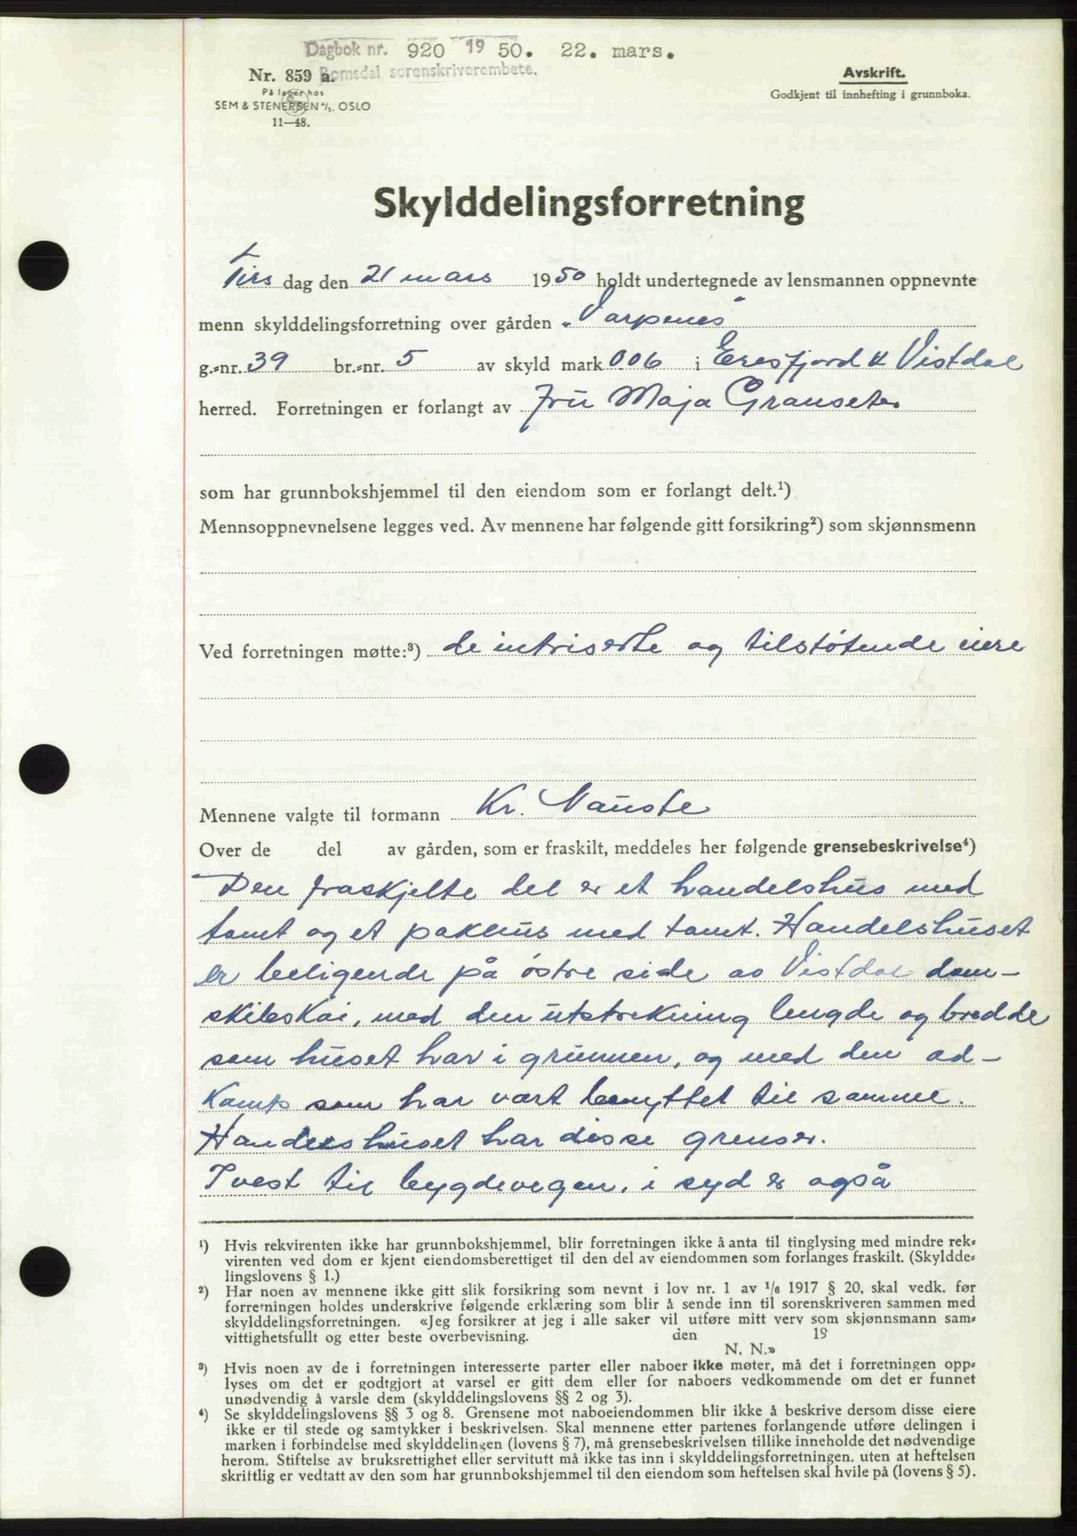 Dagbok nr. 920 1950. 22. mars.
Romsdal sorenskriverembete.
Nr. 859 a.
På lager hos
SEM & STENERSEN A/S. OSLO
11—48.
Avskrift.
Godkjent til innhefting i grunnboka.
Skylddelingsforretning
Tirs dag den 21 mars 1950 holdt undertegnede av lensmannen oppnevnte
menn skylddelingsforretning over gården "Varpenes"
g.-nr. 39 br.-nr. 5 av skyld mark 0.06 i Eresfjord & Vistdal
herred. Forretningen er forlangt av Fru Maja Granseter
som har grunnbokshjemmel til den eiendom som er forlangt delt.¹)
Mennsoppnevnelsene legges ved. Av mennene har følgende gitt forsikring²) som skjønnsmenn
Ved forretningen møtte:³) de intriserte og tilstøtende eiere
Mennene valgte til formann Kr. Nauste
Over de del av gården, som er fraskilt, meddeles her følgende grensebeskrivelse⁴)
Den fraskjelte del er et handelshus med
tomt og et pakkhus med tomt. Handelshuset
er beligende på østre side av Vistdal dam-
skibskai, med den utstrekning lengde og bredde
som huset har i grunnen, og med den ad-
komst som har vært benyttet til samme.
Handelshuset har disse grenser.
I vest til bygdevegen, i syd er også
¹) Hvis rekvirenten ikke har grunnbokshjemmel, blir forretningen ikke å anta til tinglysing med mindre rek-
virenten ved dom er kjent eiendomsberettiget til den del av eiendommen som forlanges fraskilt. (Skyldde-
lingslovens § 1.)
²) Har noen av mennene ikke gitt slik forsikring som nevnt i lov nr. 1 av 1/6 1917 § 20, skal vedk. før
forretningen holdes underskrive følgende erklæring som blir å sende inn til sorenskriveren sammen med
skylddelingsforretningen. «Jeg forsikrer at jeg i alle saker vil utføre mitt verv som skjønnsmann sam-
vittighetsfullt og etter beste overbevisning. den 19
N. N.»
³) Hvis noen av de i forretningen interesserte parter eller naboer ikke møter, må det i forretningen opp-
lyses om det er godtgjort at varsel er gitt dem eller for naboers vedkommende om det er funnet
unødvendig å varsle dem (skylddelingslovens §§ 2 og 3).
⁴) Se skylddelingslovens §§ 3 og 8. Grensene mot naboeiendommen blir ikke å beskrive dersom disse eiere
ikke er til stede og samtykker i beskrivelsen. Skal mennene etter partenes forlangende utføre delingen i
marken i forbindelse med skylddelingen (lovens § 7), må grensebeskrivelsen tillike inneholde det nødvendige
herom. Stiftelse av bruksrettighet eller servitutt må ikke tas inn i skylddelingsforretningen. uten at heftelsen
skriftlig er vedtatt av den som har grunnbokshjemmel til den eiendom som heftelsen skal hvile på (lovens § 5).